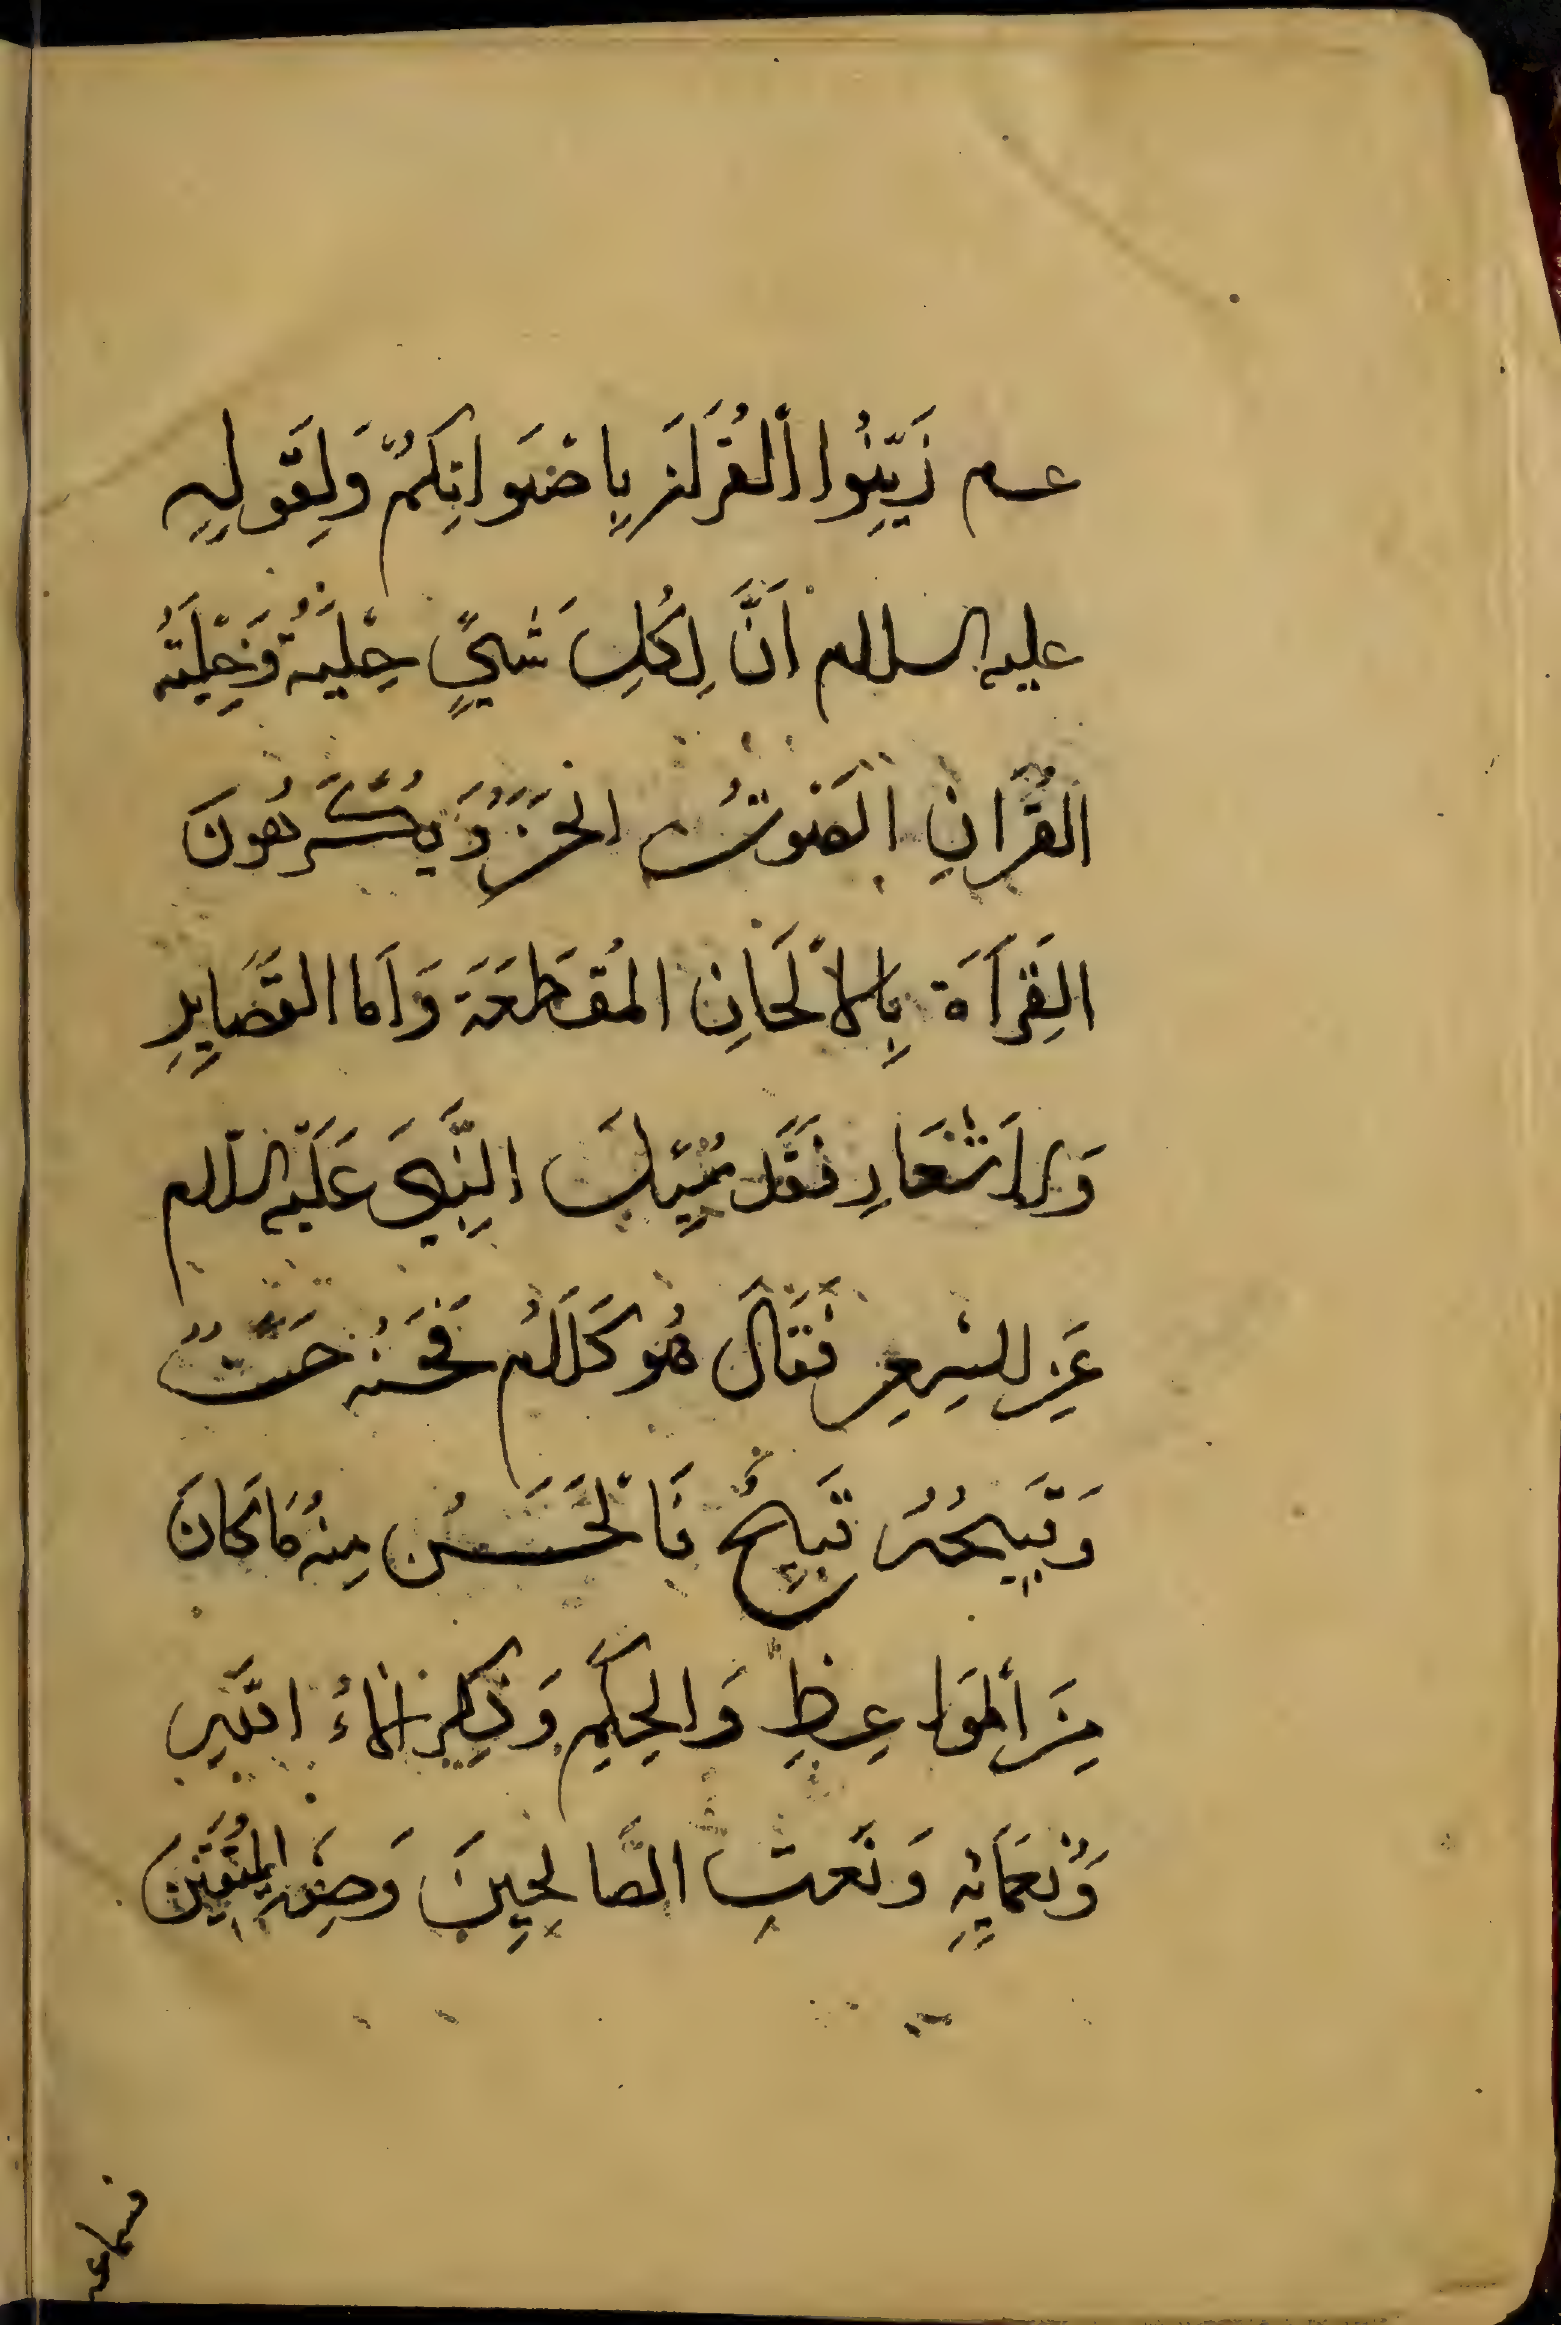 عـم زَيِّنُوا اْلقُرْاَنَ بِاَصْوَاتِكُمْ وَلِقَولِهِ
عليه السلام اَنَّ لِكُلِّ شَيْءٍ حِلْيَةٌ وَحِلْيَةُ
القُرْانِ الصَوْتُ الحَسَنُ وَيَكْرَهُونَ
القِرَآَةَ بِالاَلْحَانِ المُقَطَعَةَ وَاَما القَصَايِدِ
وَالاَشْعَارِ فَقَد سُئِلَ النَّبِيَ عَلَيْه السّلام
عَنِ الشِعِرِ فَقَالَ هُو كَلَامٌ فَحَسَنُهُ حَسَنٌ
وَقَبِيحُهُ قَبِيحٌ فَالْحَسَنُ مِنهُ مَا كَانَ
مِنَ اْلمَوَاعِظِ وَالحِكَمِ وَذِكِرِ الآءِ اللّٰهِ
وَنُعَمَايِهِ وَنَعتِ الصَّالِحِينَ وَصِفَةِ المُتَّقِينَ
فسماعه